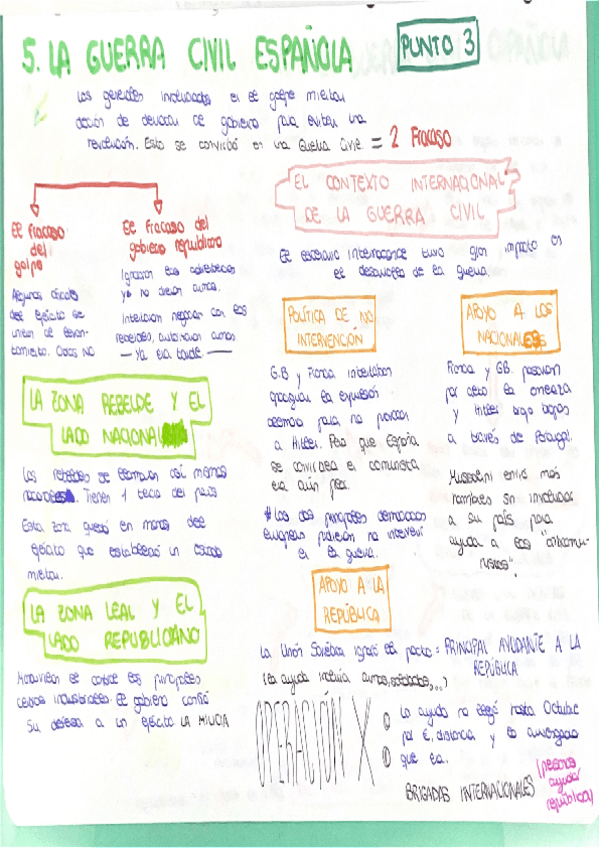 5. LA GUERRA CIVIL ESPAÑOLA
PUNTO 3
Los generales involucados en el golpe militar
de gobierno para evitar una
revolución. Esto se convirtió en una Guerra Civil. = 2 Fracaso
El fracaso
del
golpe
Algunos oficiales
del ejército se
unen al levan-
tamiento. Otros NO
El fracaso del
gobierno republicano
Ignoraron las advertencias
y no dieron armas.
Intentaron negociar con los
rebeldes, armas
— Ya era tarde —
LA ZONA REBELDE Y EL
LADO NACIONAL
Los rebeldes se llamaron así mismos
nacionales. Tienen 1 tercio del país
Esta zona quedó en manos del
ejército que estableció un estado
militar.
LA ZONA LEAL Y EL
LADO REPUBLICANO
el control los principales
centros industriales. El gobierno confió
su defensa a un ejército LA MILICIA
EL CONTEXTO INTERNACIONAL
DE LA GUERRA CIVIL
El escenario internacional tuvo gran impacto en
el desarrollo de la guerra.
POLÍTICA DE NO
INTERVENCIÓN
G.B y Francia intentaban
apaciguar la expansión
alemana para no provocar
a Hitler. Pero que España
se convirtiera el comunista
era aún peor.
* Los dos principales democracias
europeas pidieron no intervenir
en la guerra.
APOYO A LOS
NACIONALES
Francia y GB. pasaron
por alto la amenaza
y Hitler bajo
a través de Portugal.
Mussolini envió más
hombres sin involucrar
a su país para
ayudar a los
APOYO A LA
REPÚBLICA
La Unión Soviética ignoró el pacto = PRINCIPAL AYUDANTE A LA
REPÚBLICA
(la ayuda incluía armas, soldados,...)
OPERACIÓN X
La ayuda no llegó hasta Octubre
por €, distancia y lo
que era.
BRIGADAS INTERNACIONALES
(personas
ayudar
república)